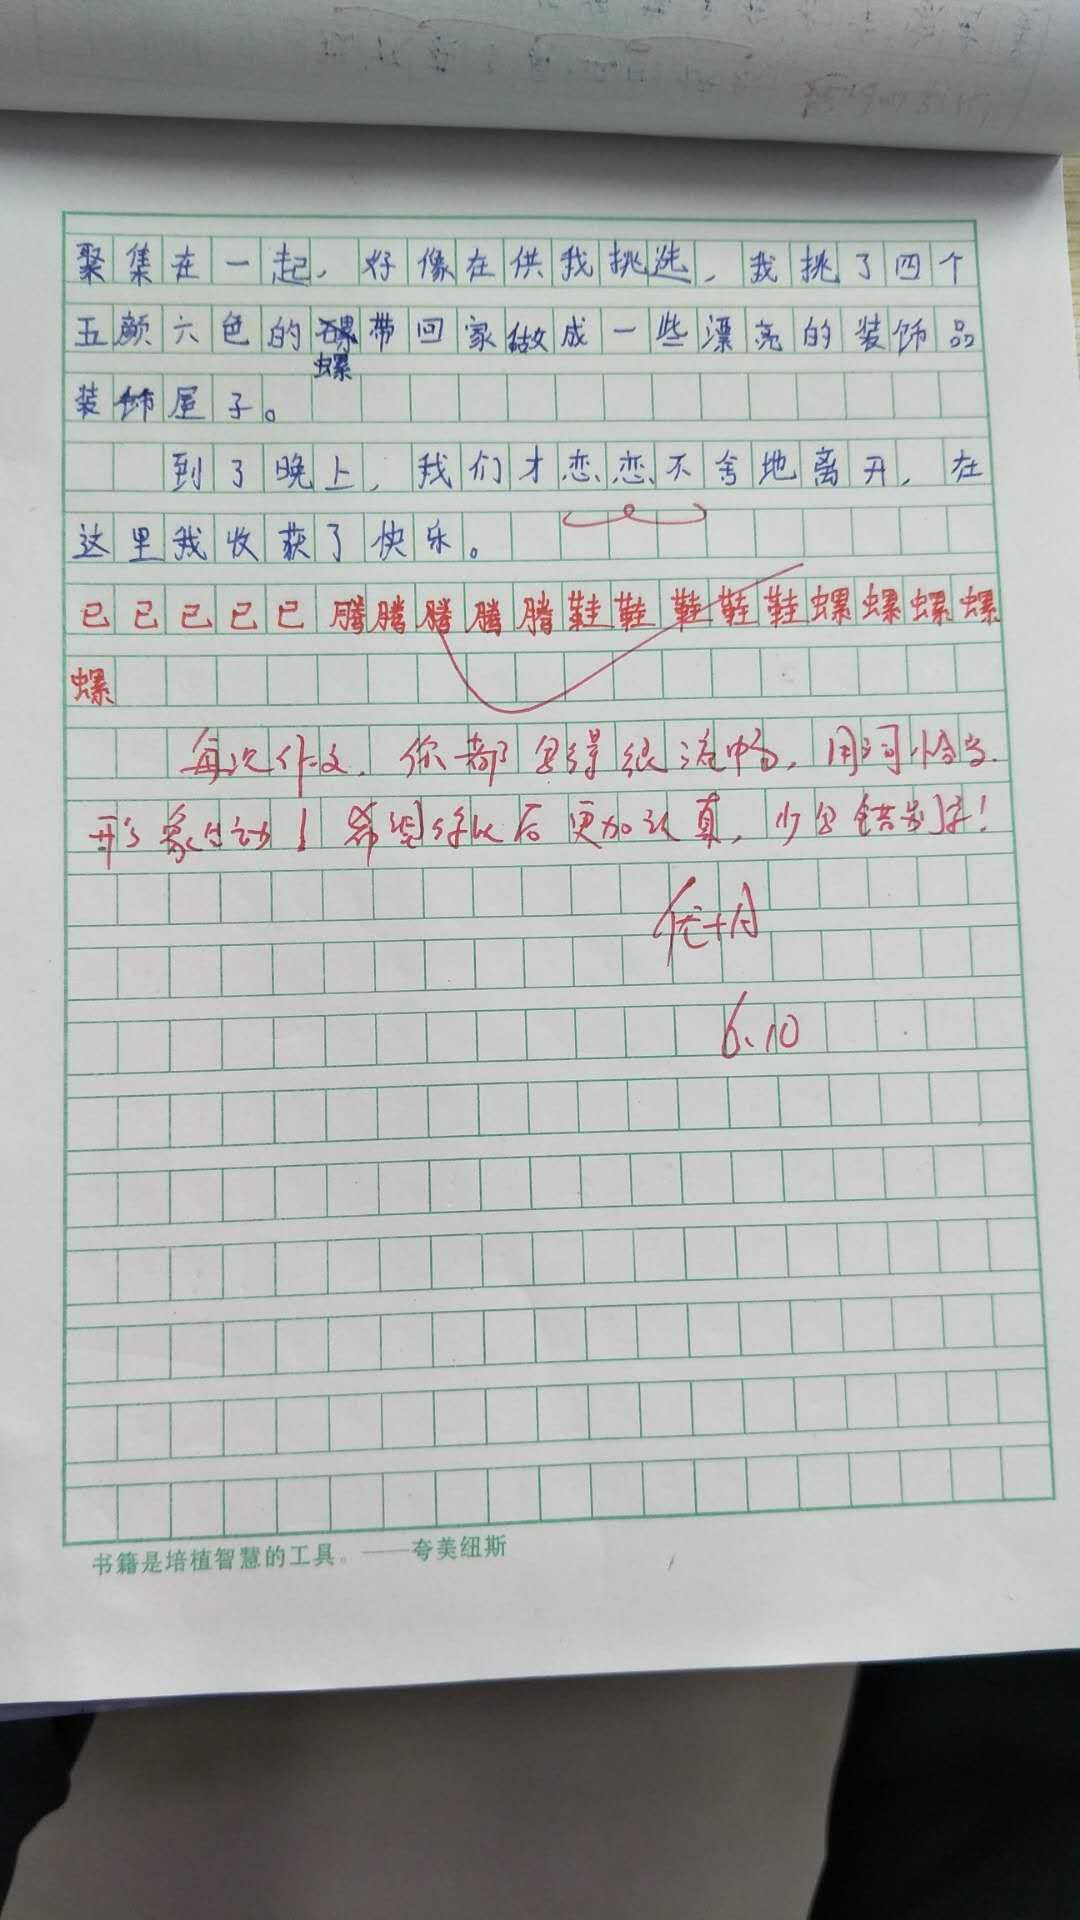 聚集在一起，好像在供我挑选，我挑了四个
五颜六色的螺带回家做成一些漂亮的装饰品
螺
装饰屋子。
到了晚上，我们才恋恋不舍地离开，在
这里我收获了快乐。
已已已已已腾腾腾腾腾鞋鞋鞋鞋鞋螺螺螺螺
螺
每次作文，你都写得很流畅，用词恰当．
形象生动！希望你以后更加认真，少写错别字！
优+月
6.10
书籍是培植智慧的工具。——夸美纽斯